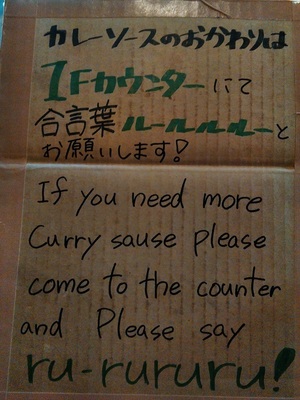 カレーソースのおかわりは
1Fカウンターにて
合言葉ルールルルーと
お願いします!
If you need more
Curry sause please
come to the counter
and Please say
ru-rururu!